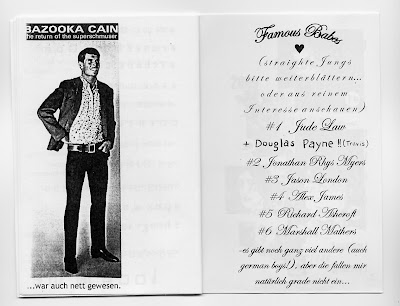 BAZOOKA CAIN
the return of the superschmuser
...war auch nett gewesen.
Famous Babes
♥
(straighte Jungs
bitte weiterblättern...
oder aus reinem
Interesse anschauen)
#1 Jude Law
+ Douglas Payne !! (Travis)
#2 Jonathan Rhys Myers
#3 Jason London
#4 Alex James
#5 Richard Ashcroft
#6 Marshall Mathers
-es gibt noch ganz viel andere (auch
german boys!), aber die fallen mir
natürlich grade nicht ein...